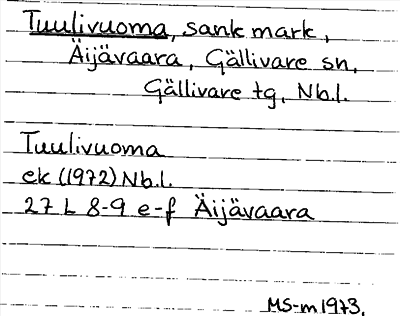 Tuulivuoma, sank mark,
Äijävaara, Gällivare sn,
Gällivare tg, Nb.l.
Tuulivuoma
ek (1972) Nb.l.
27 L 8-9 e-f Äijävaara
MS-m 1973.